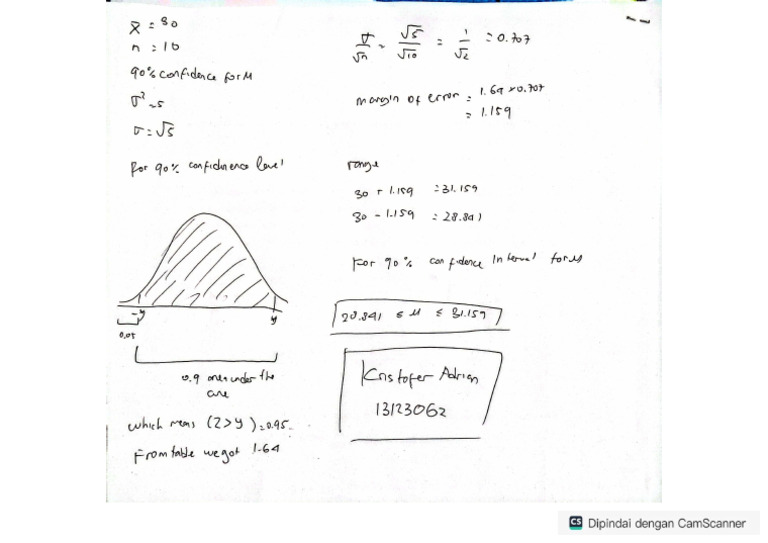 x̄ = 30
n = 10
90% confidence for M
σ² = 5
σ = √5
For 90% confidinence level
-y
y
0.05
0.9 area under the
curve
which means (Z>y) = 0.95.
From table we got 1.64
σ/√n = √5/√10 = 1/√2 = 0.707
margin of error = 1.64 x 0.707
= 1.159
range
30 + 1.159 = 31.159
30 - 1.159 = 28.841
For 90% confidence Interval for M
28.841 ≤ M ≤ 31.159
Kristofer Adrian
13123062
CS Dipindai dengan CamScanner